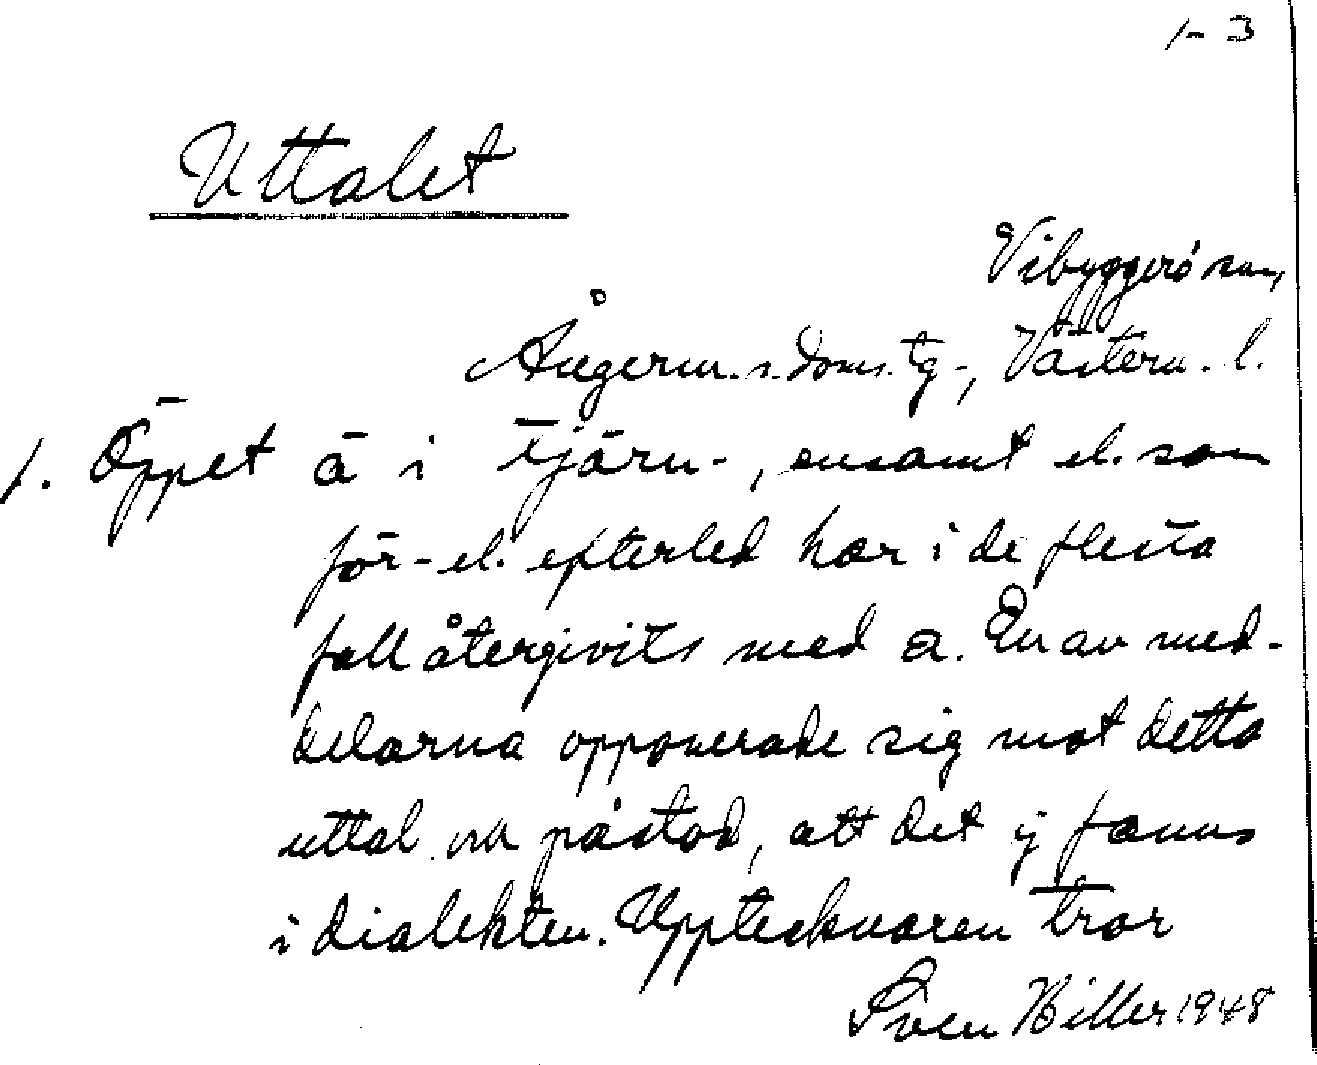 1-3
Uttalet
Vibyggerå sn,
Ångerm. s. doms. tg., Västern. l.
1. Öppet ä i tjärn-, ensamt el. som
för- el. efterled har i de flesta
fall återgivits med a. En av med-
delarna opponerade sig mot detta
uttal och påstod, att det ej fanns
i dialekten. Upptecknaren tror
Sven Hiller 1948